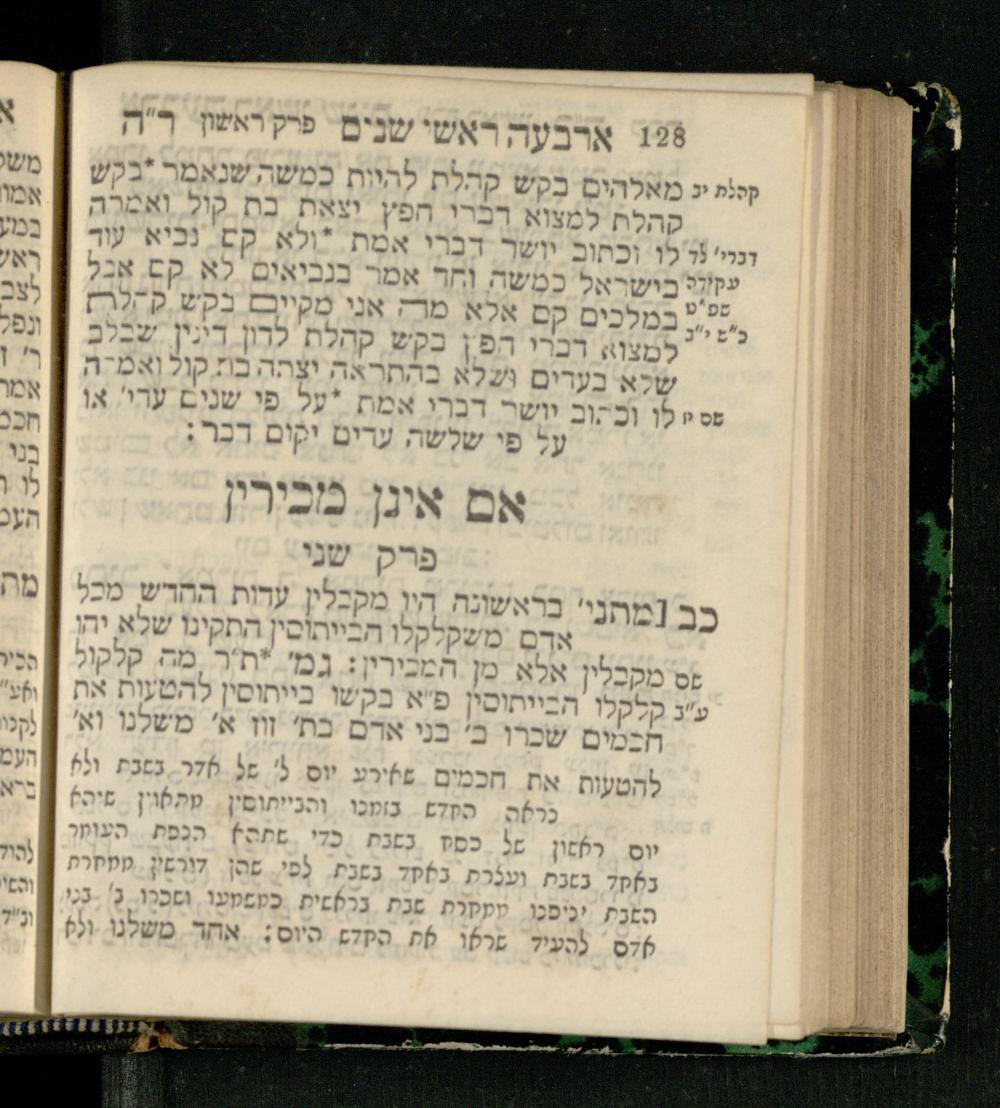 128 ארבעה ראשי שנים פרק ראשון ר״ה
קהלת יב מאלהים בקש קהלת להיות כמשה שנאמר *בקש
קהלת למצוא דברי חפץ יצאת בת קול ואמרה
דברי׳ לד לו וכתוב יושר דברי אמת *ולא קם נביא עוד
עקידה בישראל כמשה וחד אמר בנביאים לא קם אבל
במלכים קם אלא מה אני מקיים בקש קהלת
למצוא דברי חפץ בקש קהלת לדון דינין שבלב
שלא בעדים ושלא בהתראה יצתה בת קול ואמרה
שם יז לו וכתוב יושר דברי אמת *על פי שנים עדי׳ או
על פי שלשה עדים יקום דבר:
אם אינן מכירין
פרק שני
כב [מתני׳ בראשונה היו מקבלין עדות החדש מכל
אדם משקלקלו הבייתוסין התקינו שלא יהו
שם מקבלין אלא מן המכירין: גמ׳ *ת״ר מה קלקול
ע״ב קלקלו הבייתוסין פ״א בקשו בייתוסין להטעות את
חכמים שכרו ב׳ בני אדם בת׳ זוז א׳ משלנו וא׳
להטעות את חכמים שאירע יום ל׳ של אדר בשבת ולא
נראה החדש בזמנו והבייתוסין מתאוין שיהא
יום ראשון של פסח בשבת כדי שתהא הנפת העומר
באחד בשבת ועצרת באחד בשבת לפי שהן דורשין ממחרת
השבת יניפנו ממחרת שבת בראשית כמשמעו ושכרו ב׳ בני
אדם להעיד שראו את החדש היום: אחד משלנו ולא